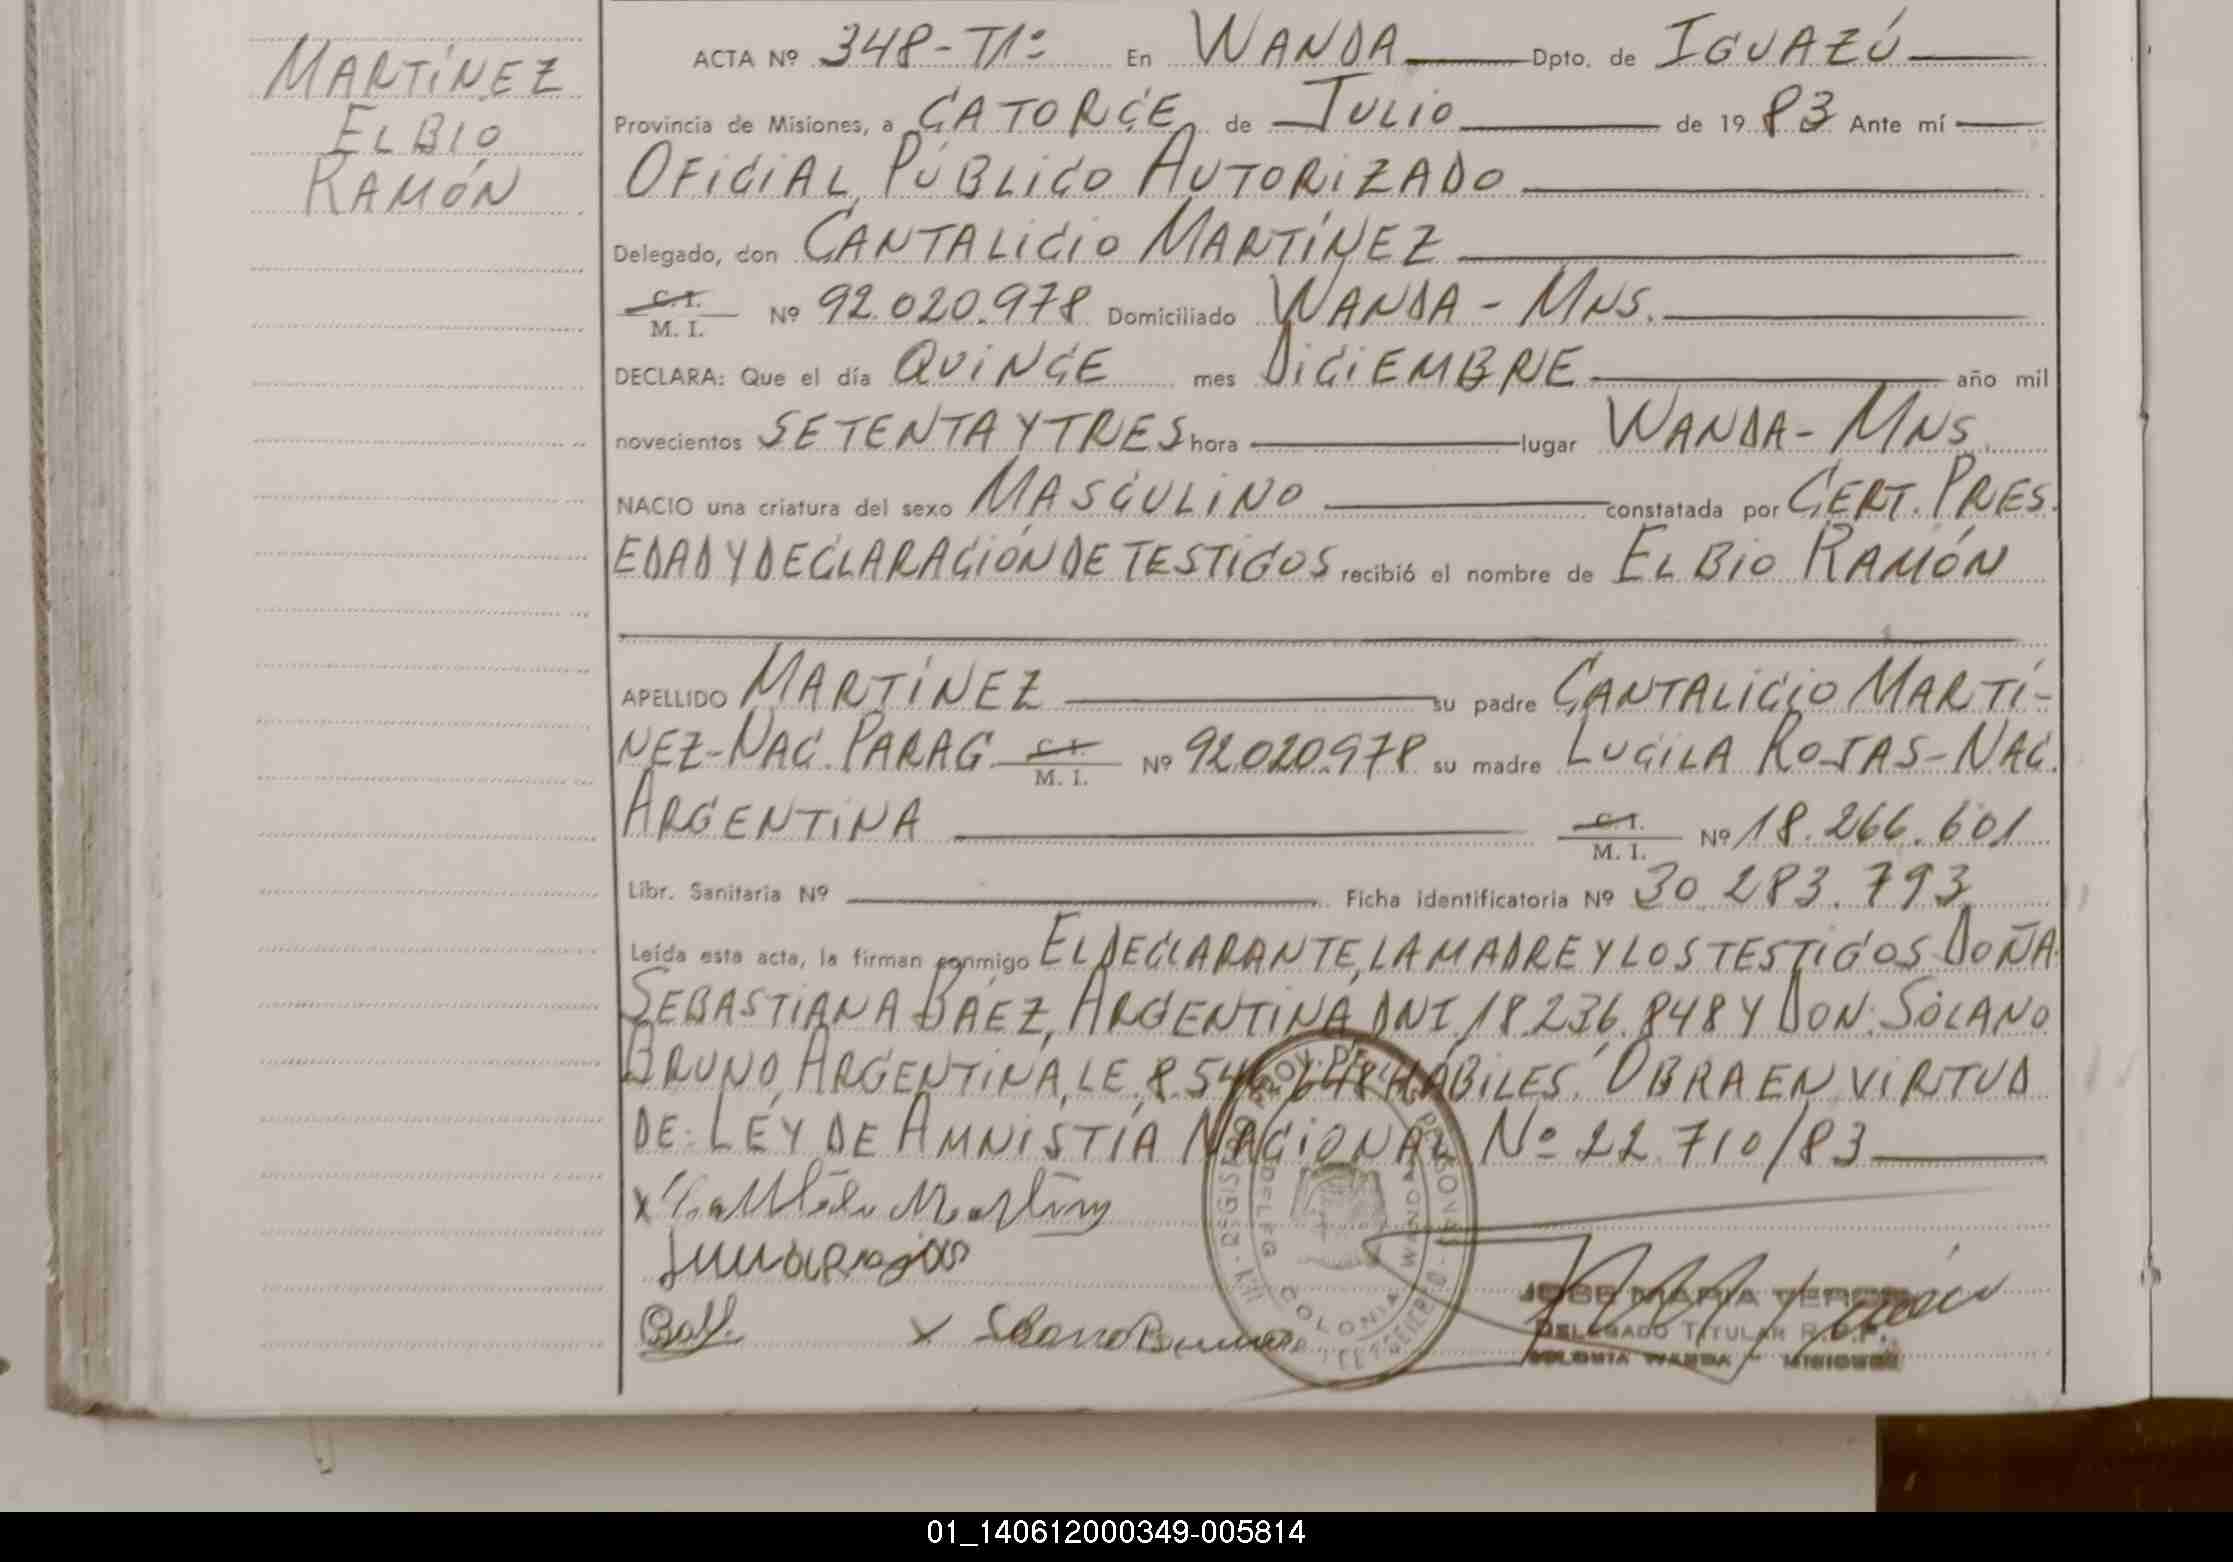 MARTÍNEZ
ELBIO
RAMÓN
ACTA Nº 348-T1º En WANDA Dpto. de IGUAZÚ
Provincia de Misiones, a CATORCE de JULIO de 1983 Ante mí
OFICIAL PÚBLICO AUTORIZADO
Delegado, don CANTALICIO MARTÍNEZ
C. I.
M. I. Nº 92.020.978 Domiciliado WANDA - MNS.
DECLARA: Que el día QUINCE mes DICIEMBRE año mil
novecientos SETENTA Y TRES hora lugar WANDA - MNS.
NACIO una criatura del sexo MASCULINO constatada por CERT. PRES.
EDAD Y DECLARACIÓN DE TESTIGOS recibió el nombre de ELBIO RAMÓN
APELLIDO MARTÍNEZ su padre CANTALICIO MARTÍ-
NEZ-NAC. PARAG. C. I. M. I. Nº 92.020.978 su madre LUCILA ROJAS-NAC.
ARGENTINA C. I. M. I. Nº 18.266.601
Libr. Sanitaria Nº Ficha identificatoria Nº 30.283.793
Leída esta acta, la firman conmigo EL DECLARANTE, LA MADRE Y LOS TESTIGOS DOÑA
SEBASTIANA BÁEZ, ARGENTINA, DNI, 18.236.848 Y DON: SOLANO
BRUNO, ARGENTINA, LE, 8.54 648 HÁBILES. OBRA EN VIRTUD
DE: LEY DE AMNISTÍA NACIONAL Nº 22.710/83
x Martinez
x Solano Bruno
JOSE MARIA
DELEGADO TITULAR R.C.P.
COLONIA WANDA - MISIONES
REGISTRO PROV. DE LAS PERSONAS
DELEG. COLONIA WANDA
01_140612000349-005814